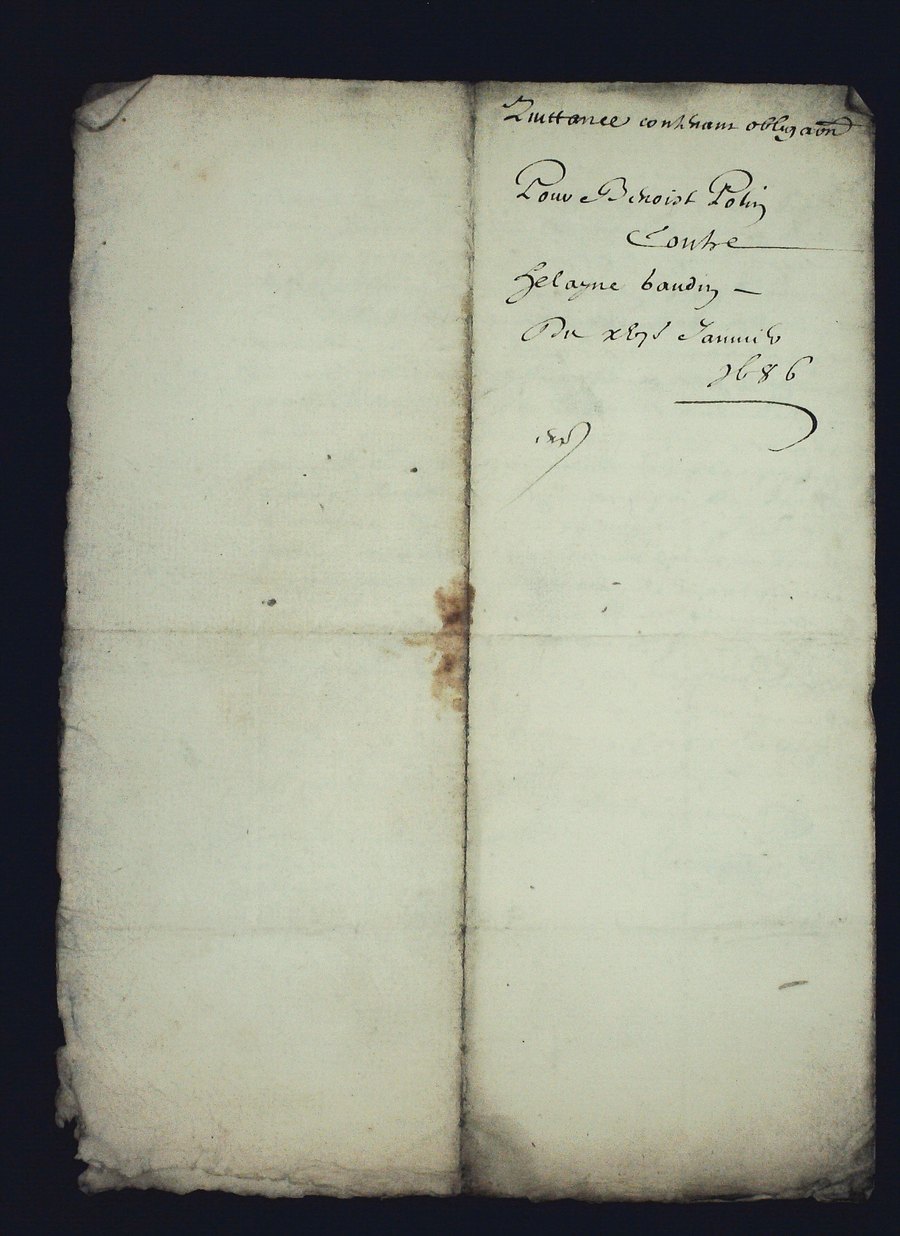 Quittance contenant obliga͠on
Pour Benoist Polin
Contre
helayne baudin
Du Janvier
1686